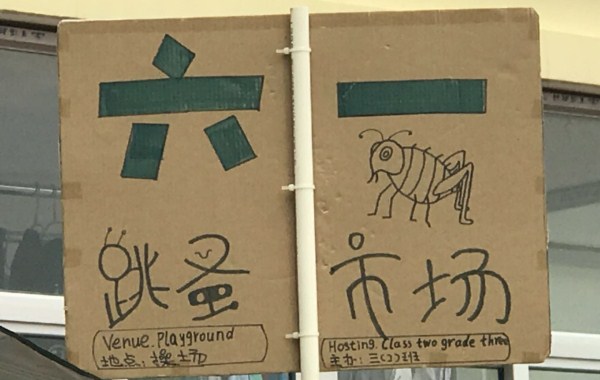 六一
跳蚤市场
Venue. Playground
地点：操场
Hosting. Class two grade three
主办：三（二）班